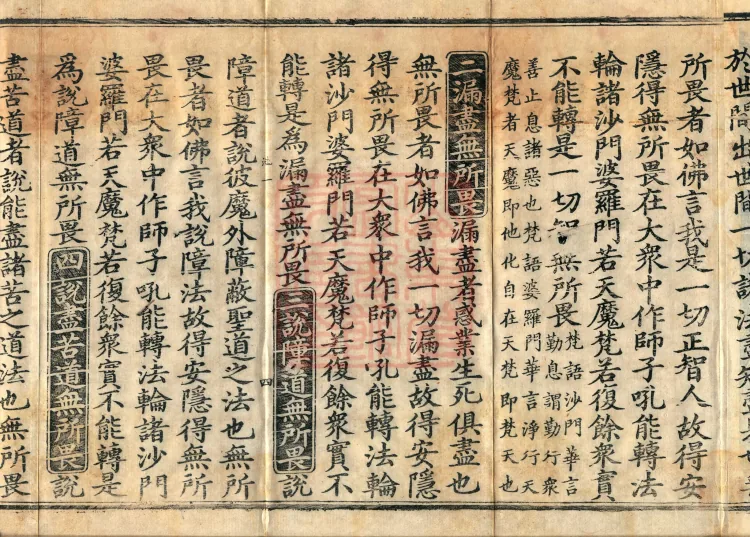 於世間出世間一切諸法
所畏者如佛言我是一切正智人故得安
隱得無所畏在大衆中作師子吼能轉法
輪諸沙門婆羅門若天魔梵若復餘衆實
不能轉是一切智無所畏梵語沙門華言勤息謂勤行衆
善止息諸惡也梵語婆羅門華言淨行天
魔梵者天魔即他化自在天梵即梵天也
二漏盡無所畏漏盡者惑業生死俱盡也
無所畏者如佛言我一切漏盡故得安隱
得無所畏在大衆中作師子吼能轉法輪
諸沙門婆羅門若天魔梵若復餘衆實不
能轉是為漏盡無所畏三說障道無所畏說
障道者說彼魔外障蔽聖道之法也無所
畏者如佛言我說障法故得安隱得無所
畏在大衆中作師子吼能轉法輪諸沙門
婆羅門若天魔梵若復餘衆實不能轉是
為說障道無所畏四說盡苦道無所畏說
盡苦道者說能盡諸苦之道法也無所畏
四